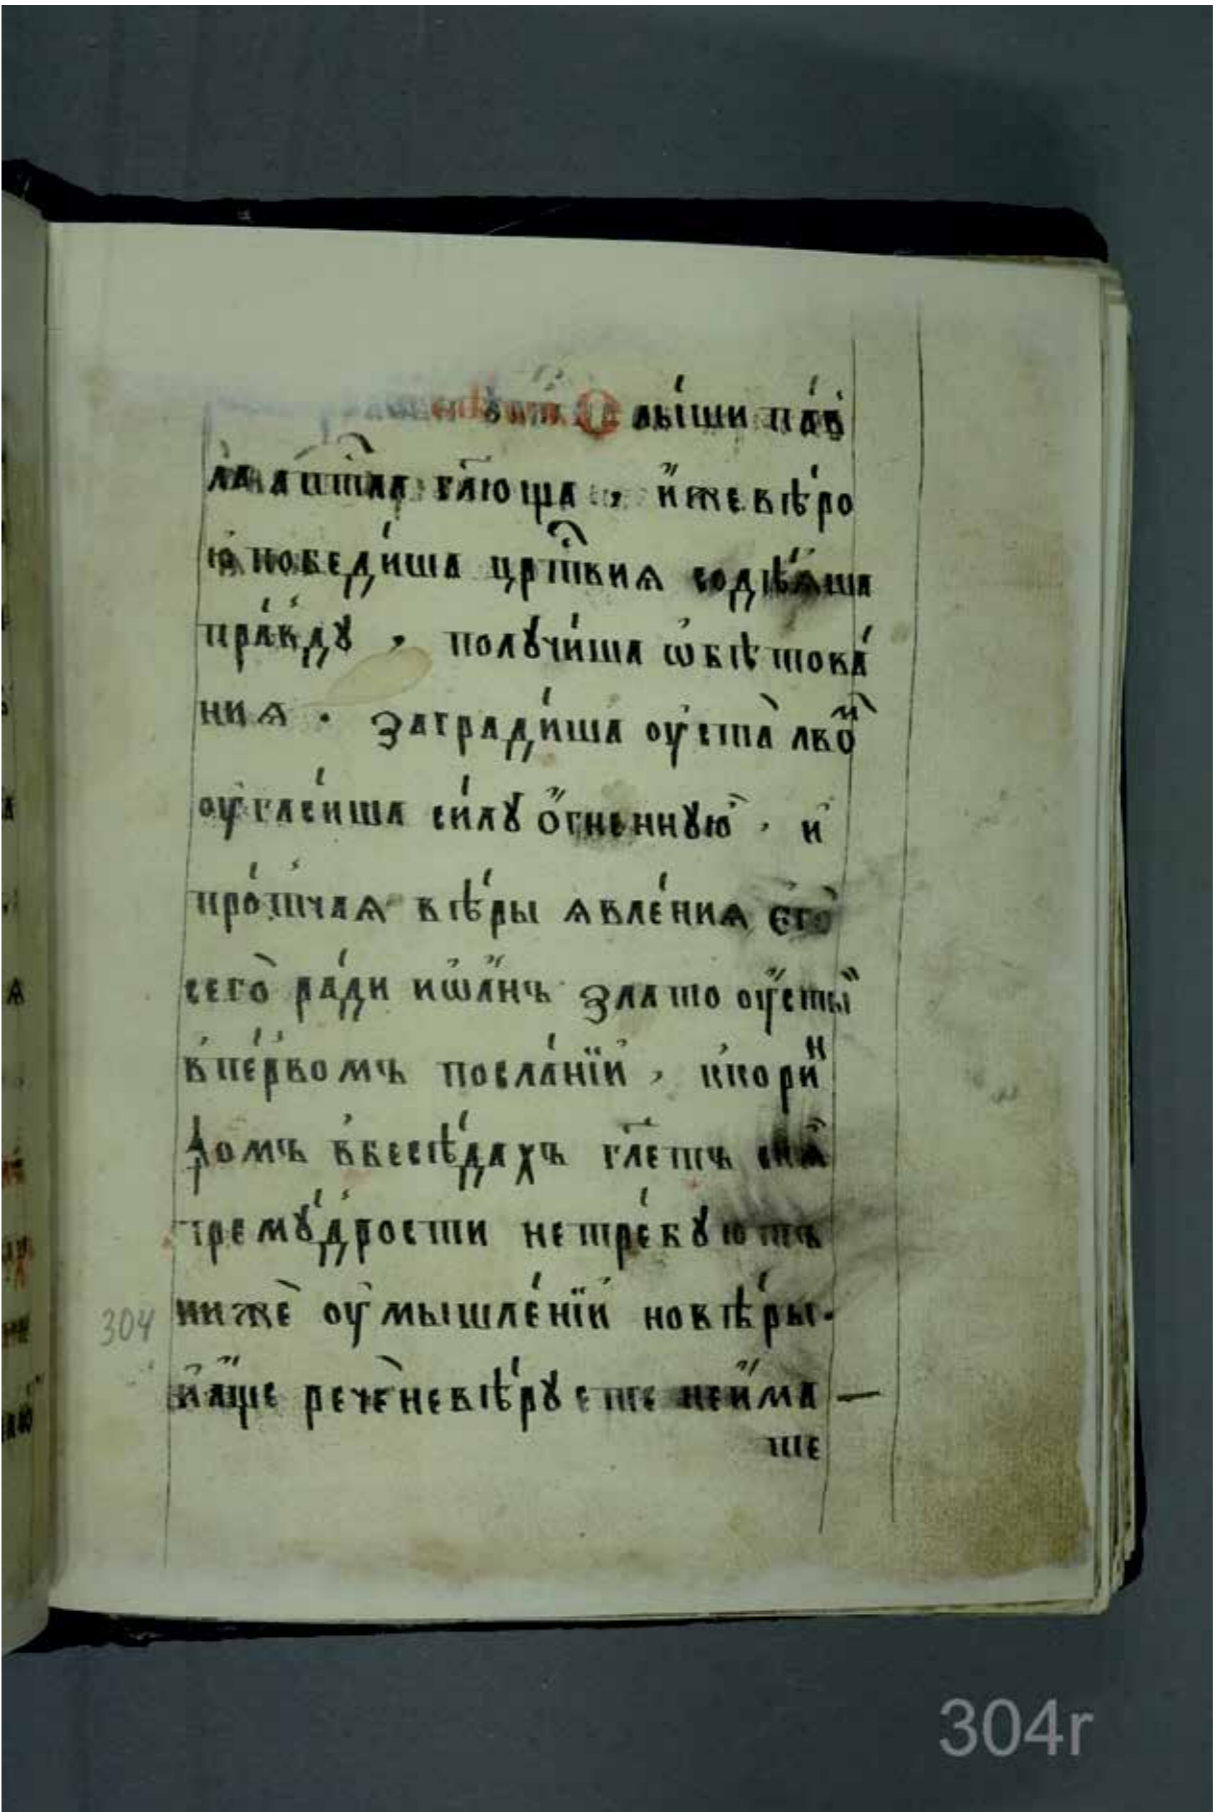 лы́ши па́в
ла ап҃ла гл҃юща , и́же вѣ́ро
ю победи́ша црⷭ҇твия содѣ́яша
пра́вду , полꙋчи́ша ѡбѣтова́
ния . заградиша оуста̀ лво́ⷨ
оугаси́ша си́лꙋ о́гненнꙋю , и
про́тчая вѣ́ры явле́ния его̀
сего̀ ра́ди иѡа́нъ златооусты
в пе́рвомъ посла́нїи , к кориⷩ
ѳомъ в бесѣ́дахъ гл҃етъ
премꙋ́дрости не тре́бꙋютъ
нижѐ оумышле́нїи но вѣ́ры .
и а́ще рече̂ не вѣ́рꙋете не и́ма —
те
304
304r